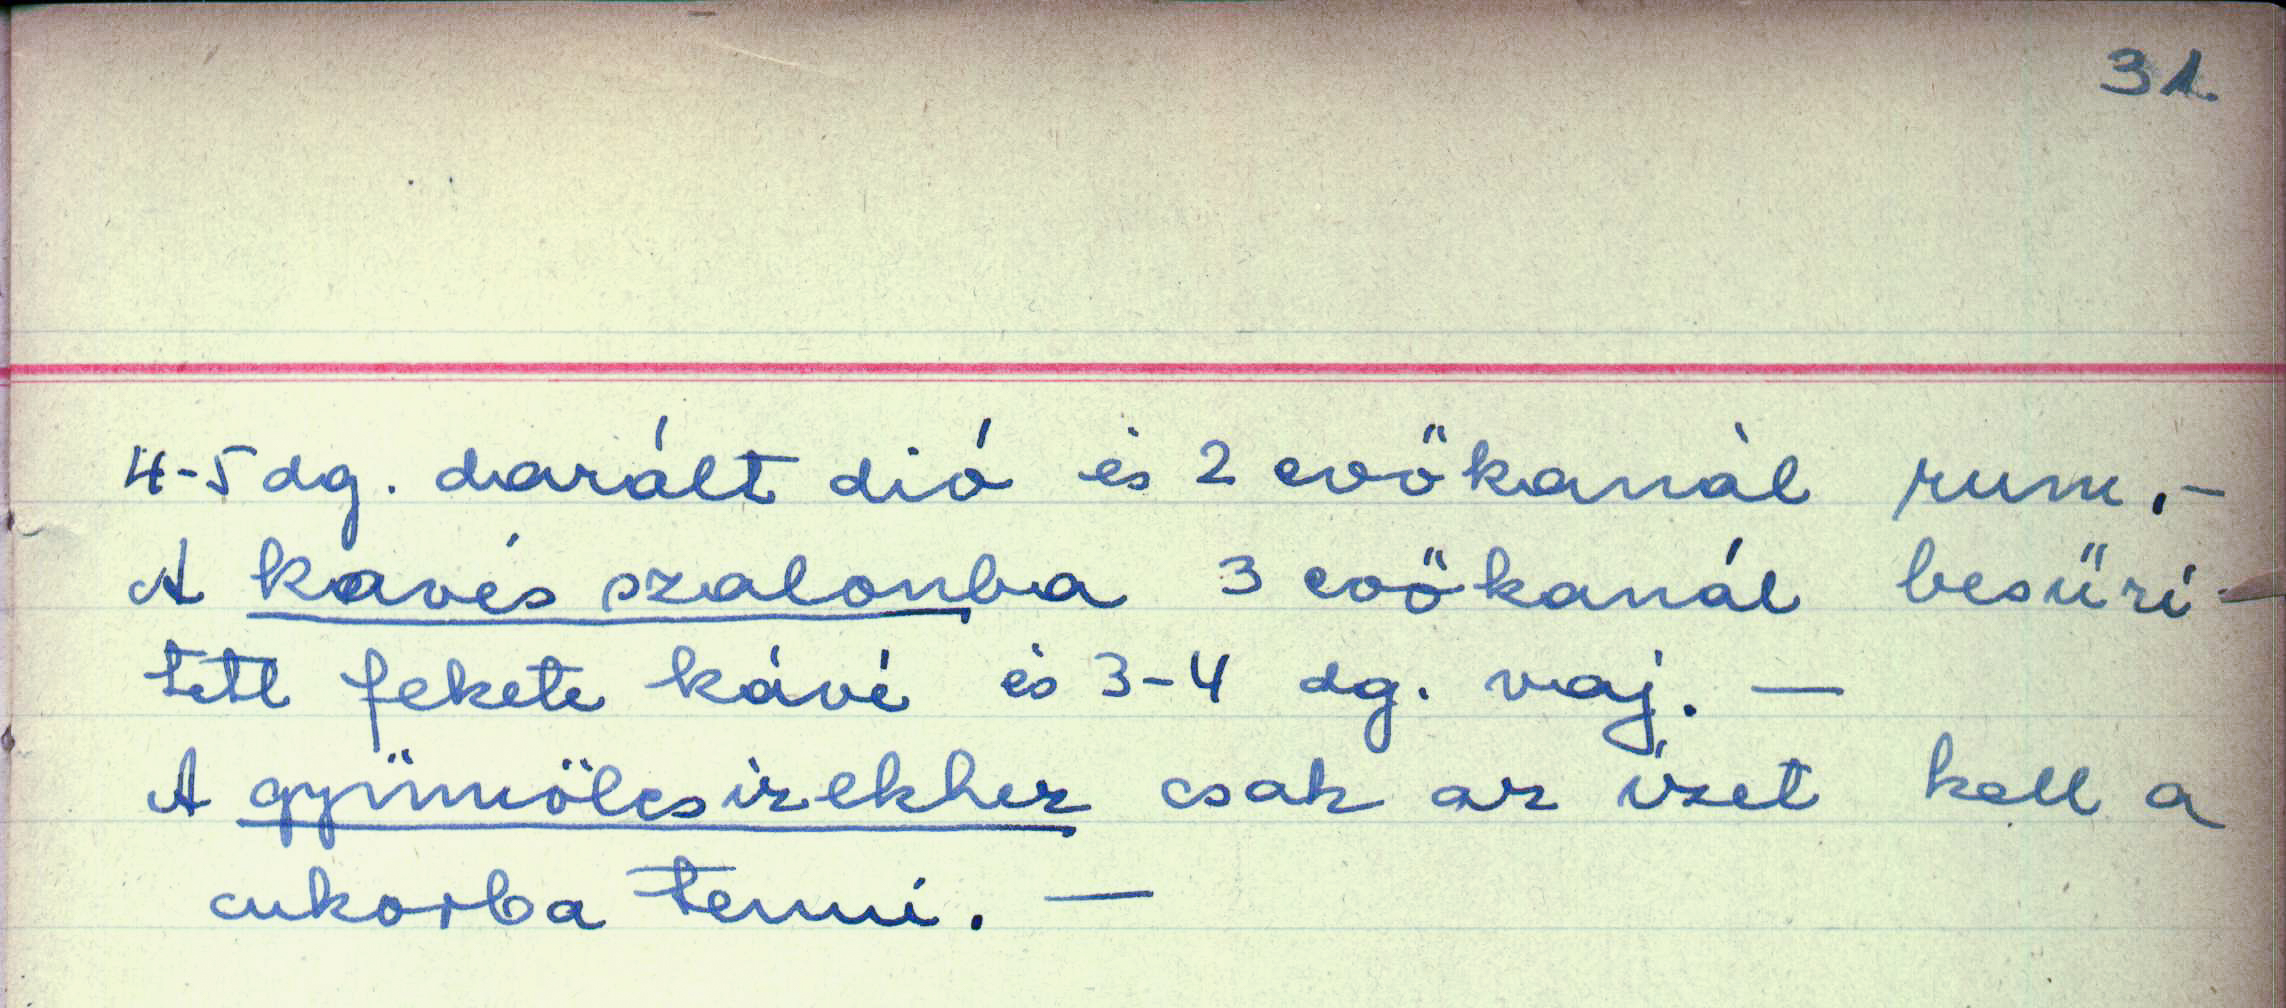 31.
4-5 dg. darált dió és 2 evőkanál rum.-
A kavés szalonba 3 evőkanál besűri-
tett fekete kávé és 3-4 dg. vaj. —
A gyümölcsizekhez csak az ízet kell a
cukorba tenni. —